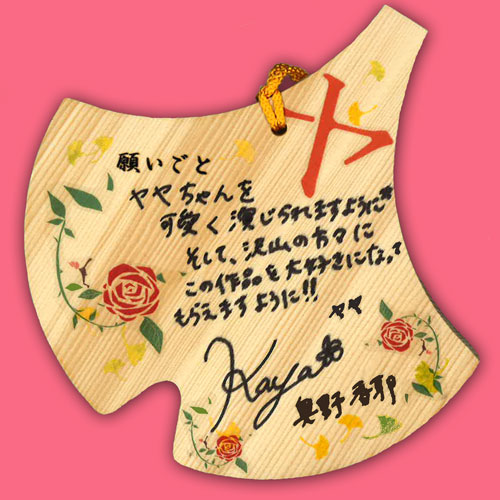 ヤ
願いごと
ヤヤちゃんを
可愛く演じられますように
そして、沢山の方々に
この作品を大好きになって
もらえますように!!
ヤヤ
Kaya
奥野香耶